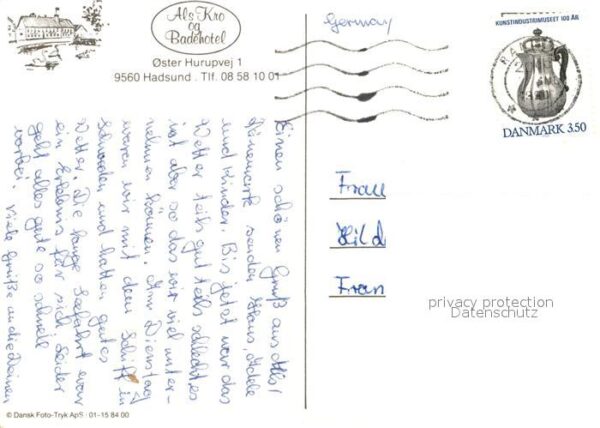 Als Kro
og
Badehotel
Øster Hurupvej 1
9560 Hadsund . Tlf. 08 58 10 01
Germany
KUNSTINDUSTRIMUSEET 100 ÅR
DANMARK 3.50
Einen schönen Gruß aus Als/
Dänemark senden Klaus, Adele
und Kinder. Bis jetzt war das
Wetter teils gut teils schlechtes
ist aber so das wir viel unter-
nehmen können. Am Dienstag
waren wir mit dem Schiff in
Schweden und hatten gutes
Wetter. Die lange Seefahrt war
ein Erlebnis für sich. Leider
geht alles gute so schnell
vorbei. Viele Grüße an die Deinen
Frau
Hild
Fran
privacy protection
Datenschutz
© Dansk Foto-Tryk ApS · 01-15 84 00